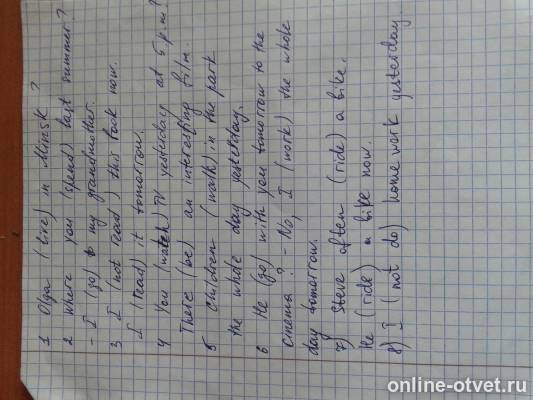 1 Olga (live) in Minsk ?
2 Where you (spend) last summer?
- I (go) to my grandmother.
3 I (not read) this book now.
I (read) it tomorrow.
4 You (watch) TV yesterday at 5 p.m?
There (be) an interesting film.
5 Children (walk) in the park
the whole day yesterday.
6 He (go) with you tomorrow to the
cinema? - No, I (work) the whole
day tomorrow.
7) Steve often (ride) a bike.
He (ride) a bike now.
8) I (not do) home work yesterday.
online-otvet.ru